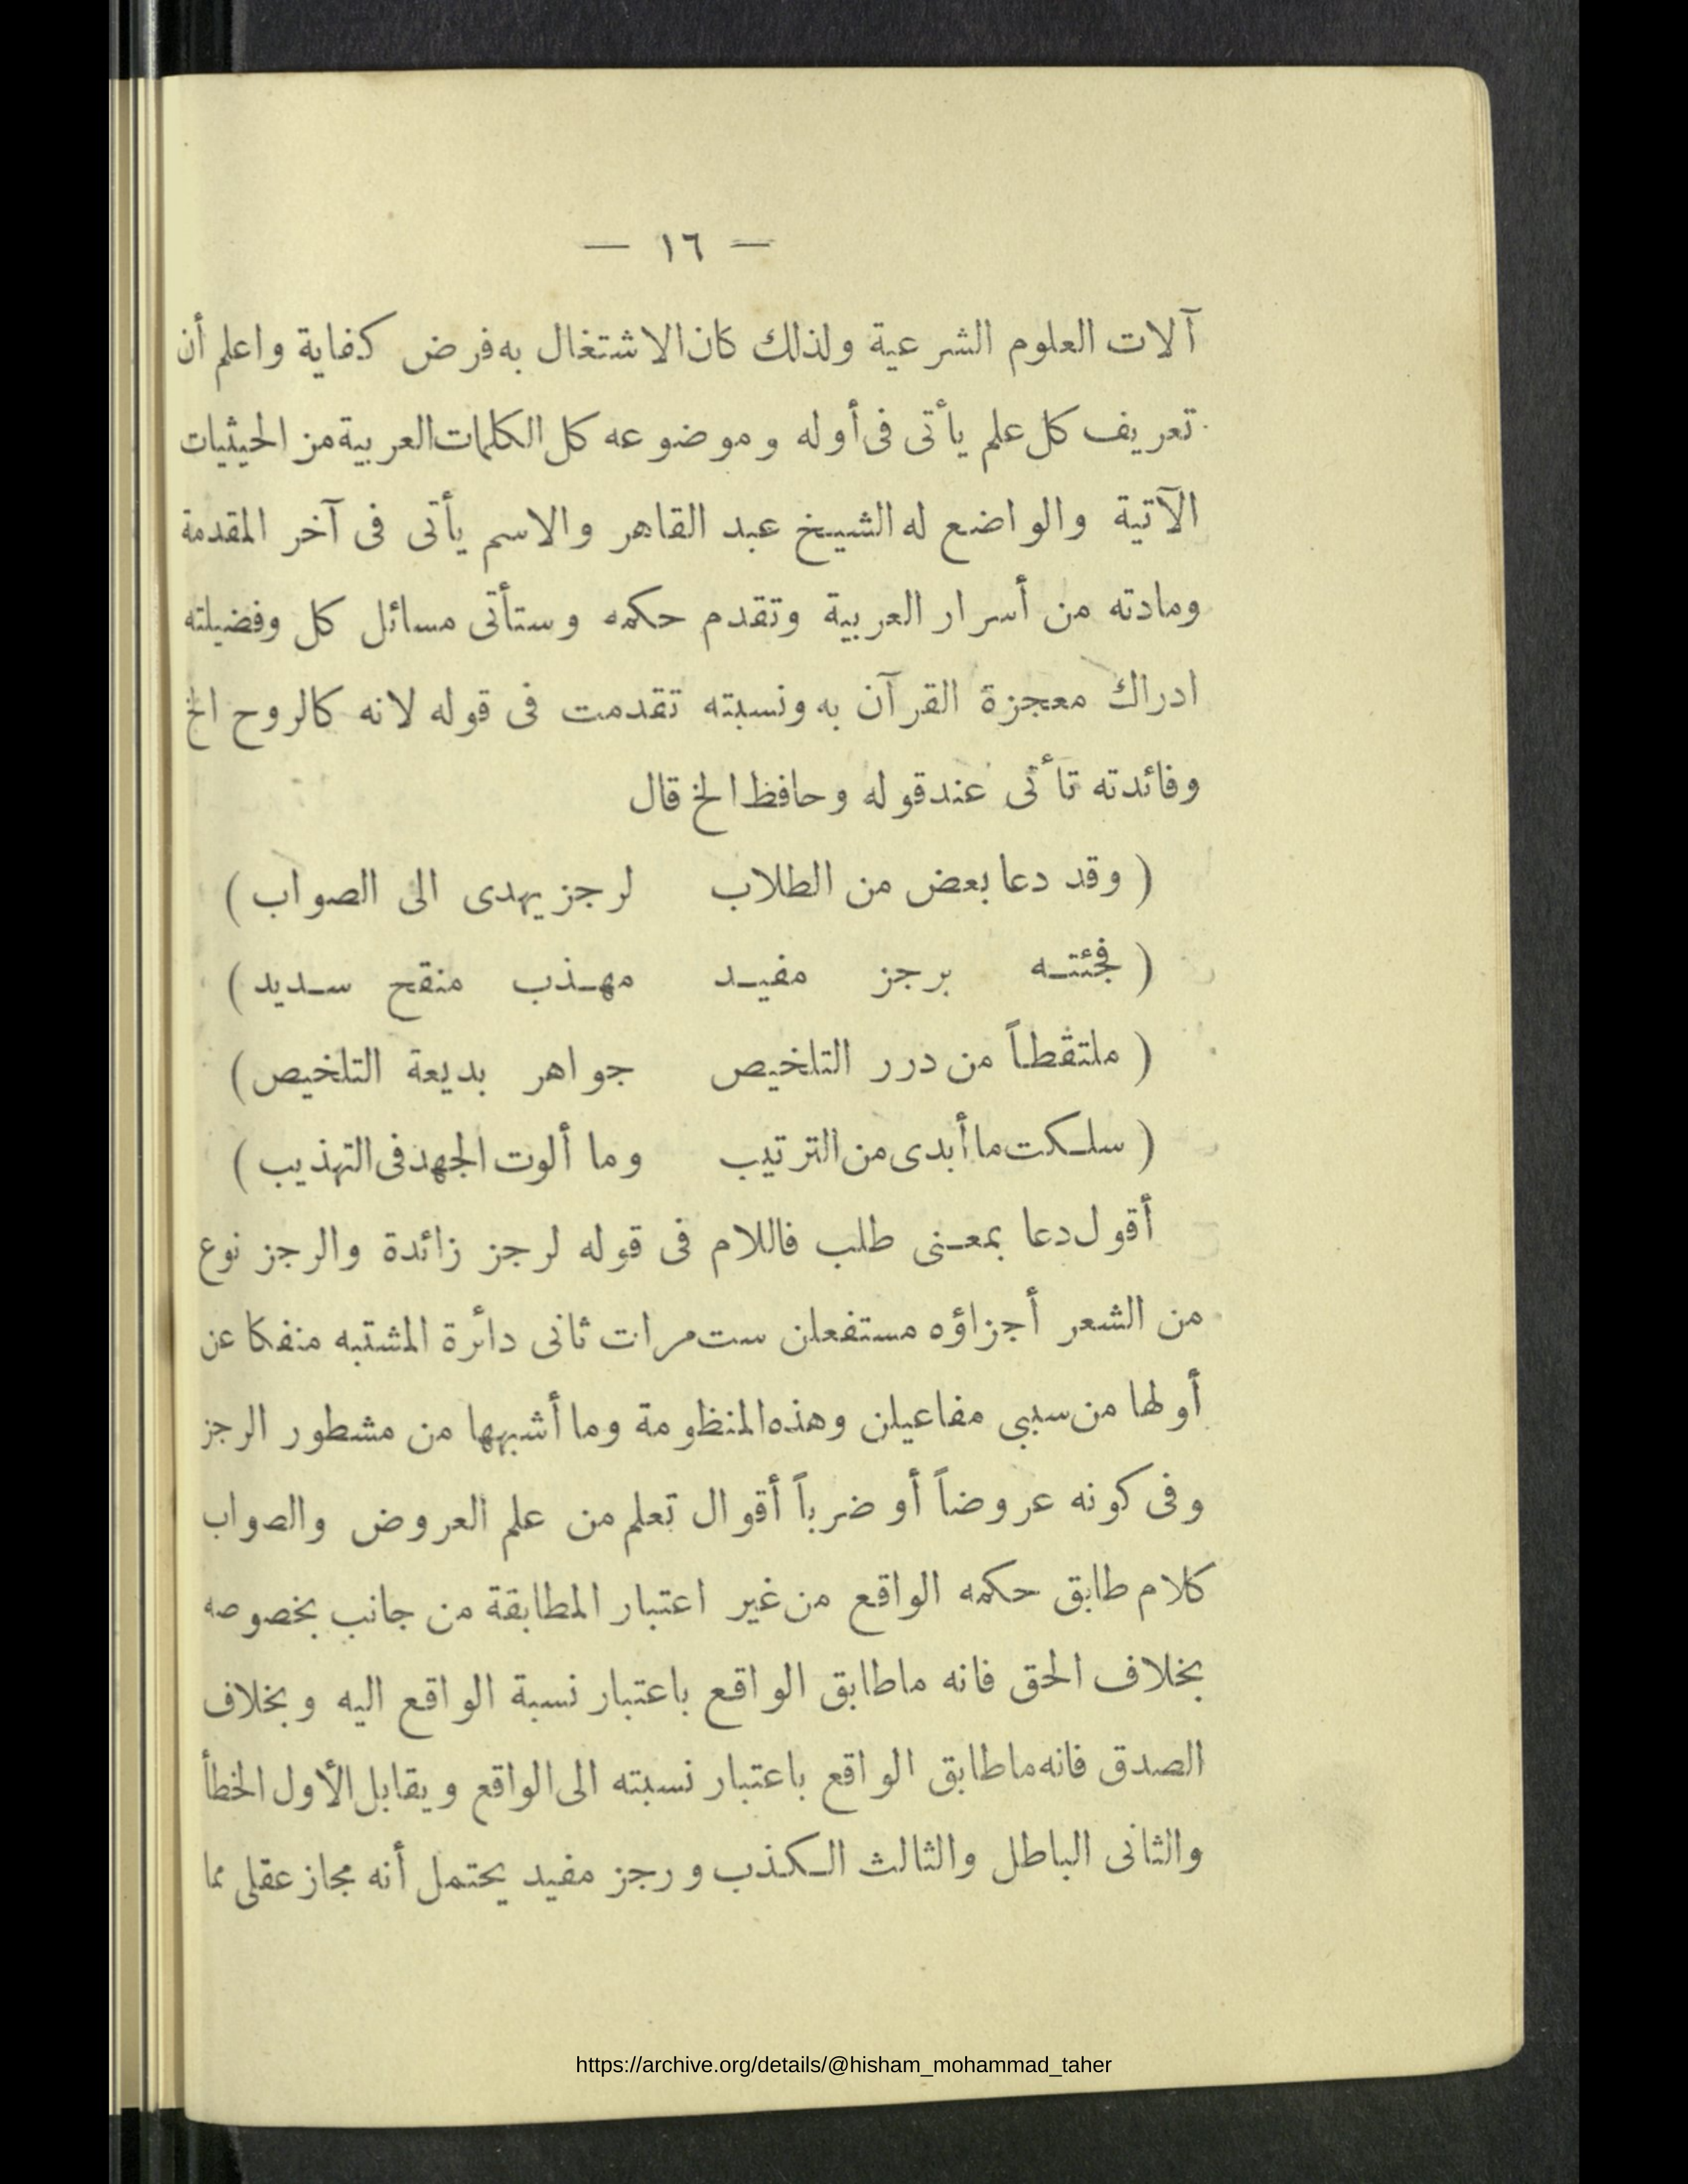 — ١٦ —
آلات العلوم الشرعية ولذلك كان الاشتغال به فرض كفاية واعلم أن
تعريف كل علم يأتى فى أوله وموضوعه كل الكلمات العربية من الحيثيات
الآتية والواضع له الشيخ عبد القاهر والاسم يأتى فى آخر المقدمة
ومادته من أسرار العربية وتقدم حكمه وستأتى مسائل كل وفضيلته
ادراك معجزة القرآن به ونسبته تقدمت فى قوله لانه كالروح الخ
وفائدته تأتى عند قوله وحافظ الخ قال
( وقد دعا بعض من الطلاب لرجز يهدى الى الصواب )
( فجئتـه برجز مفيـد مهـذب منقح سـديد )
( ملتقطاً من درر التلخيص جواهر بديعة التلخيص )
( سلـكت ما أبدى من الترتيب وما ألوت الجهد فى التهذيب )
أقول دعا بمعـنى طلب فاللام فى قوله لرجز زائدة والرجز نوع
من الشعر أجزاؤه مستفعلن ست مرات ثانى دائرة المشتبه منفكا عن
أولها من سببى مفاعيلن وهذه المنظومة وما أشبهها من مشطور الرجز
وفى كونه عروضاً أو ضرباً أقوال تعلم من علم العروض والصواب
كلام طابق حكمه الواقع من غير اعتبار المطابقة من جانب بخصوصه
بخلاف الحق فانه ماطابق الواقع باعتبار نسبة الواقع اليه وبخلاف
الصدق فانه ماطابق الواقع باعتبار نسبته الى الواقع ويقابل الأول الخطأ
والثانى الباطل والثالث الـكذب ورجز مفيد يحتمل أنه مجاز عقلى مما
https://archive.org/details/@hisham_mohammad_taher